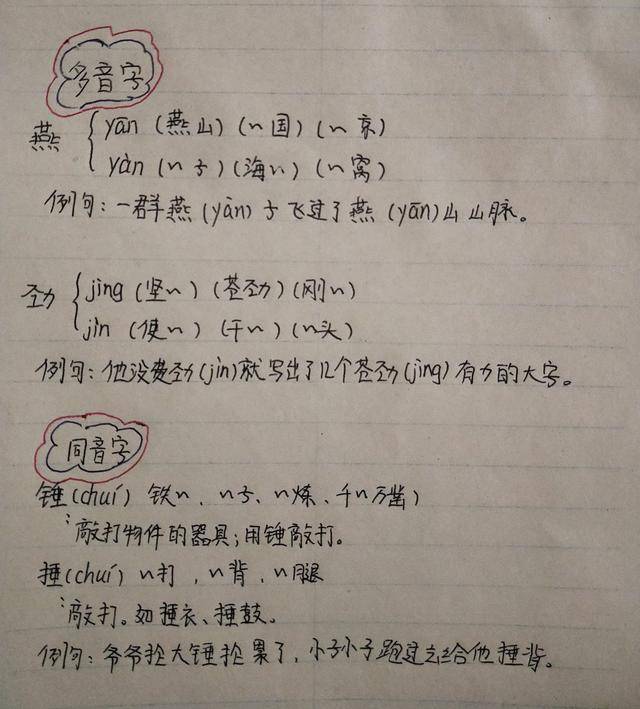 多音字
燕 yān (燕山) (〃国) (〃京)
yàn (〃子) (海〃) (〃窝)
例句：一群燕(yàn)子飞过了燕(yān)山山脉。
劲 jìng (坚〃) (苍劲) (刚〃)
jìn (使〃) (干〃) (〃头)
例句：他没费劲(jìn)就写出了几个苍劲(jìng)有力的大字。
同音字
锤(chuí) 铁〃、〃子、〃炼、千〃万凿)
：敲打物件的器具；用锤敲打。
捶(chuí) 〃打，〃背，〃腿
：敲打。如捶衣、捶鼓。
例句：爷爷抡大锤抡累了，小子小子跑过去给他捶背。